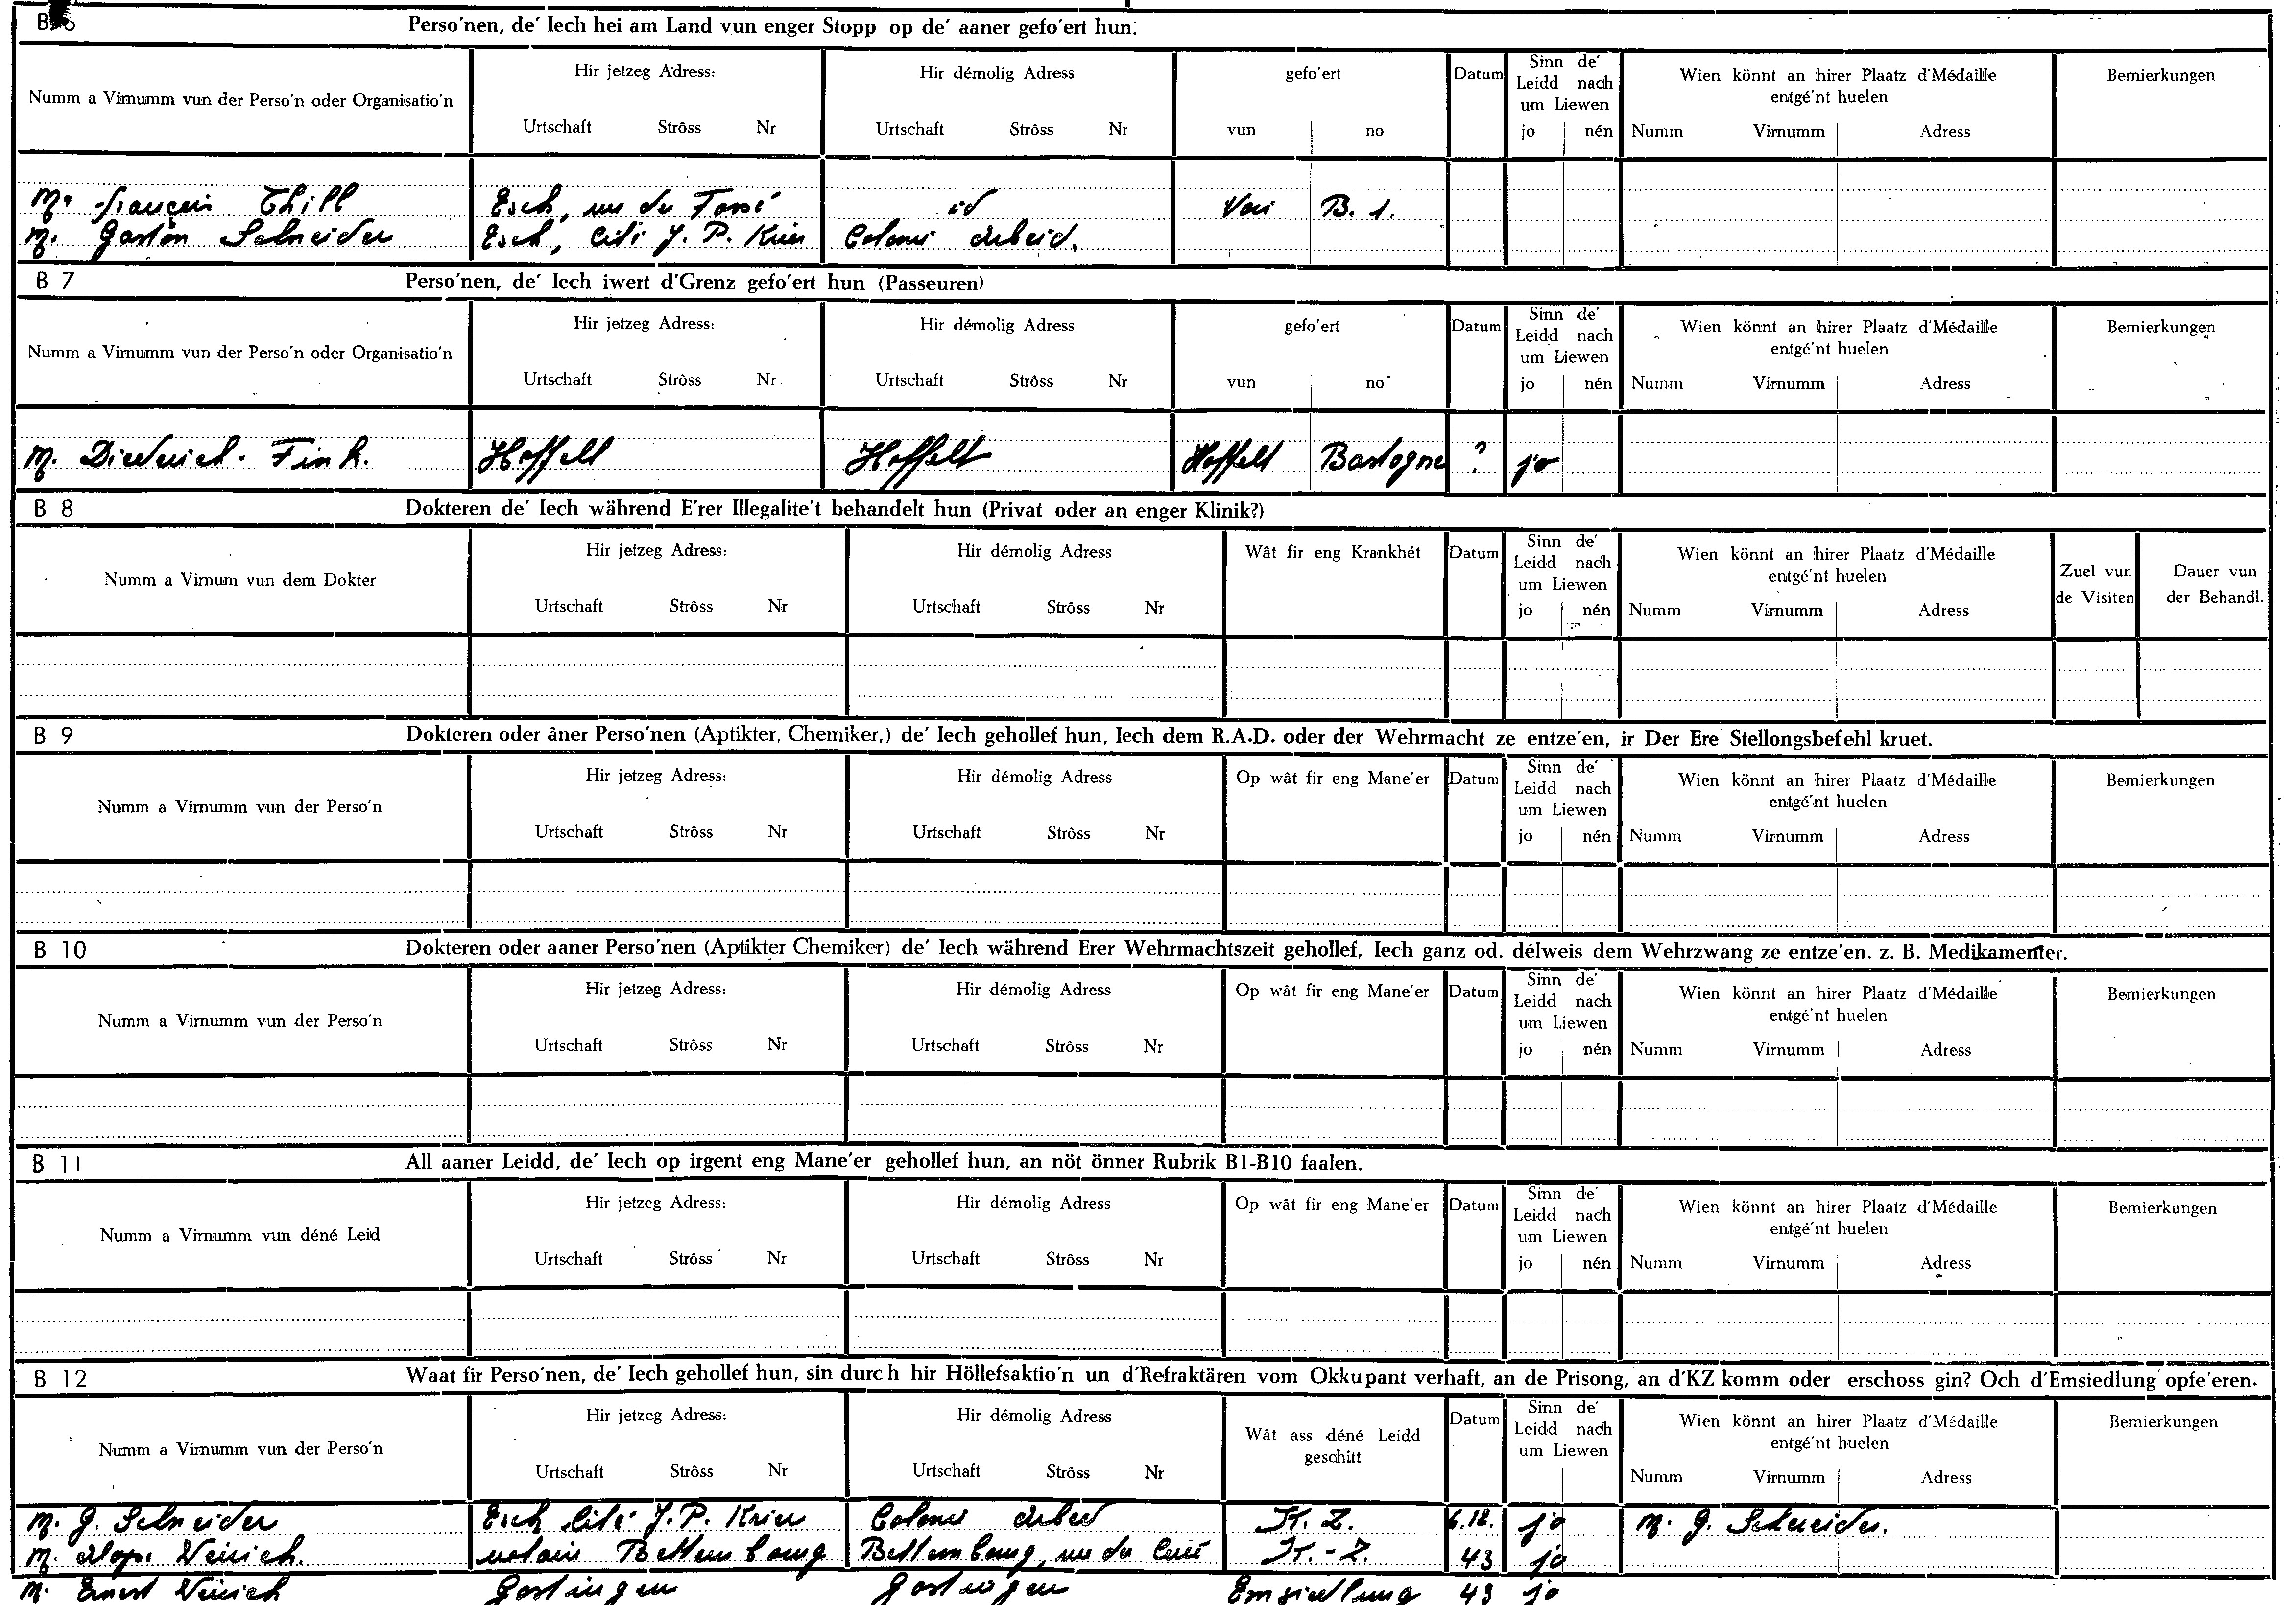 B 6 Perso'nen, de' Iech hei am Land vun enger Stopp op de' aaner gefo'ert hun.
Numm a Virnumm vun der Perso'n oder Organisatio'n
Hir jetzeg Adress:
Urtschaft Strôss Nr
Hir démolig Adress
Urtschaft Strôss Nr
gefo'ert
vun no
Datum
Sinn de'
Leidd nach
um Liewen
jo nén
Wien könnt an hirer Plaatz d'Médaille
entgé'nt huelen
Numm Virnumm Adress
Bemierkungen
M. François Thill Esch, rue du Fossé id Voir B. 1.
M. Gaston Schneider Esch, Cité J. P. Krier Colonie Arbeid.
B 7 Perso'nen, de' Iech iwert d'Grenz gefo'ert hun (Passeuren)
Numm a Virnumm vun der Perso'n oder Organisatio'n
Hir jetzeg Adress:
Urtschaft Strôss Nr.
Hir démolig Adress
Urtschaft Strôss Nr
gefo'ert
vun no
Datum
Sinn de'
Leidd nach
um Liewen
jo nén
Wien könnt an hirer Plaatz d'Médaille
entgé'nt huelen
Numm Virnumm Adress
Bemierkungen
M. Diederich-Fink. Hoffelt Hoffelt Hoffelt Bastogne ? jo
B 8 Dokteren de' Iech während E'rer Illegalite't behandelt hun (Privat oder an enger Klinik?)
Numm a Virnum vun dem Dokter
Hir jetzeg Adress:
Urtschaft Strôss Nr
Hir démolig Adress
Urtschaft Strôss Nr
Wât fir eng Krankhét
Datum
Sinn de'
Leidd nach
um Liewen
jo nén
Wien könnt an hirer Plaatz d'Médaille
entgé'nt huelen
Numm Virnumm Adress
Zuel vun
de Visiten
Dauer vun
der Behandl.
B 9 Dokteren oder âner Perso'nen (Aptikter, Chemiker,) de' Iech gehollef hun, Iech dem R.A.D. oder der Wehrmacht ze entze'en, ir Der Ere Stellongsbefehl kruet.
Numm a Virnumm vun der Perso'n
Hir jetzeg Adress:
Urtschaft Strôss Nr
Hir démolig Adress
Urtschaft Strôss Nr
Op wât fir eng Mane'er
Datum
Sinn de'
Leidd nach
um Liewen
jo nén
Wien könnt an hirer Plaatz d'Médaille
entgé'nt huelen
Numm Virnumm Adress
Bemierkungen
B 10 Dokteren oder aaner Perso'nen (Aptikter Chemiker) de' Iech während Erer Wehrmachtszeit gehollef, Iech ganz od. délweis dem Wehrzwang ze entze'en. z. B. Medikamenter.
Numm a Virnumm vun der Perso'n
Hir jetzeg Adress:
Urtschaft Strôss Nr
Hir démolig Adress
Urtschaft Strôss Nr
Op wât fir eng Mane'er
Datum
Sinn de'
Leidd nach
um Liewen
jo nén
Wien könnt an hirer Plaatz d'Médaille
entgé'nt huelen
Numm Virnumm Adress
Bemierkungen
B 11 All aaner Leidd, de' Iech op irgent eng Mane'er gehollef hun, an nöt önner Rubrik B1-B10 faalen.
Numm a Virnumm vun déné Leid
Hir jetzeg Adress:
Urtschaft Strôss Nr
Hir démolig Adress
Urtschaft Strôss Nr
Op wât fir eng Mane'er
Datum
Sinn de'
Leidd nach
um Liewen
jo nén
Wien könnt an hirer Plaatz d'Médaille
entgé'nt huelen
Numm Virnumm Adress
Bemierkungen
B 12 Waat fir Perso'nen, de' Iech gehollef hun, sin durch hir Höllefsaktio'n un d'Refraktären vom Okkupant verhaft, an de Prisong, an d'KZ komm oder erschoss gin? Och d'Emsiedlung opfe'eren.
Numm a Virnumm vun der Perso'n
Hir jetzeg Adress:
Urtschaft Strôss Nr
Hir démolig Adress
Urtschaft Strôss Nr
Wât ass déné Leidd
geschitt
Datum
Sinn de'
Leidd nach
um Liewen
Wien könnt an hirer Plaatz d'Médaille
entgé'nt huelen
Numm Virnumm Adress
Bemierkungen
M. G. Schneider Esch Cité J.P. Krier Colonie Arbed K. Z. 6.12. jo M. G. Schneider.
M. Weirich. notaire Bettembourg Bettembourg, rue du Curé K.-Z. 43 jo
M. Ernest Weirich Gostingen Gostingen Emsiedlung 43 jo